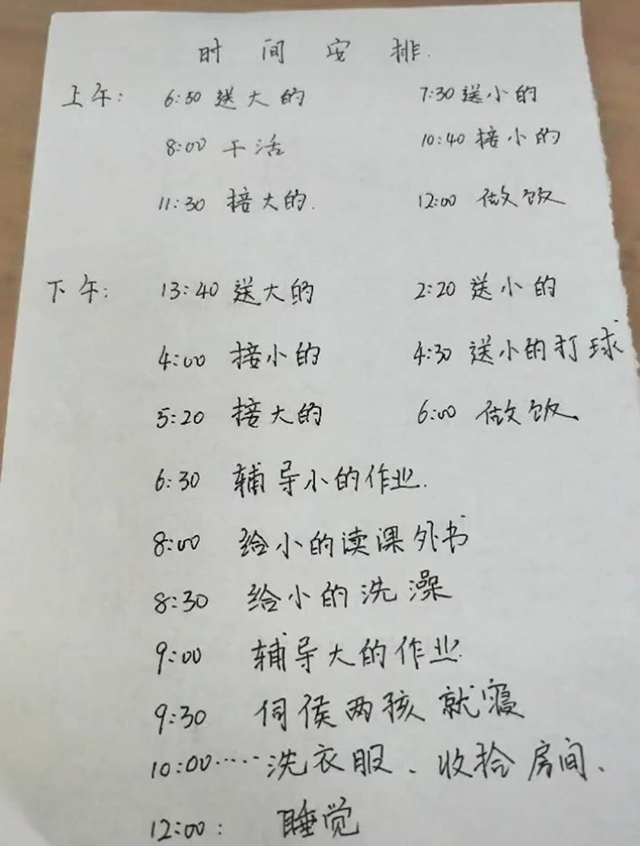 时间安排.
上午: 6:50 送大的 7:30 送小的
8:00 干活 10:40 接小的
11:30 接大的. 12:00 做饭
下午: 13:40 送大的 2:20 送小的
4:00 接小的 4:30 送小的打球
5:20 接大的 6:00 做饭
6:30 辅导小的作业.
8:00 给小的读课外书
8:30 给小的洗澡
9:00 辅导大的作业
9:30 伺侯两孩就寝
10:00……洗衣服、收拾房间、
12:00: 睡觉